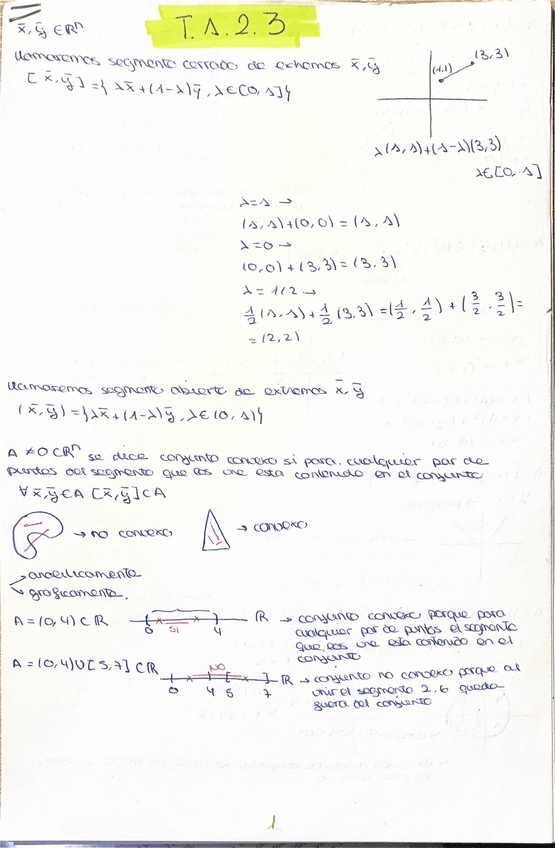 x̄, ȳ ∈ ℝⁿ
T.1.2.3
llamaremos segmento cerrado de extremos x̄, ȳ
[x̄, ȳ] = {λx̄ + (1-λ)ȳ, λ ∈ [0, 1]}
(1,1)
(3,3)
λ(1,1)+(1-λ)(3,3)
λ∈[0,1]
λ=1 →
(1,1)+(0,0)=(1,1)
λ=0 →
(0,0)+(3,3)=(3,3)
λ=1/2 →
1/2 (1,1) + 1/2 (3,3) = (1/2, 1/2) + (3/2, 3/2) =
= (2,2)
llamaremos segmento abierto de extremos x̄, ȳ
(x̄, ȳ) = {λx̄ + (1-λ)ȳ, λ ∈ (0, 1)}
A ≠ 0 ⊂ ℝⁿ se dice conjunto convexo si para cualquier par de
puntos del segmento que los une esta contenido en el conjunto
∀ x̄, ȳ ∈ A [x̄, ȳ] ⊂ A
→ no convexo
→ convexo
analiticamente
graficamente.
A = (0,4) ⊂ ℝ
0 SI 4 ℝ
→ conjunto convexo porque para
cualquier par de puntos el segmento
que los une esta contenido en el
conjunto
A = (0,4) ∪ [5,7] ⊂ ℝ
NO
0 4 5 7 ℝ
→ conjunto no convexo porque al
unir el segmento 2.6 queda
fuera del conjunto
1